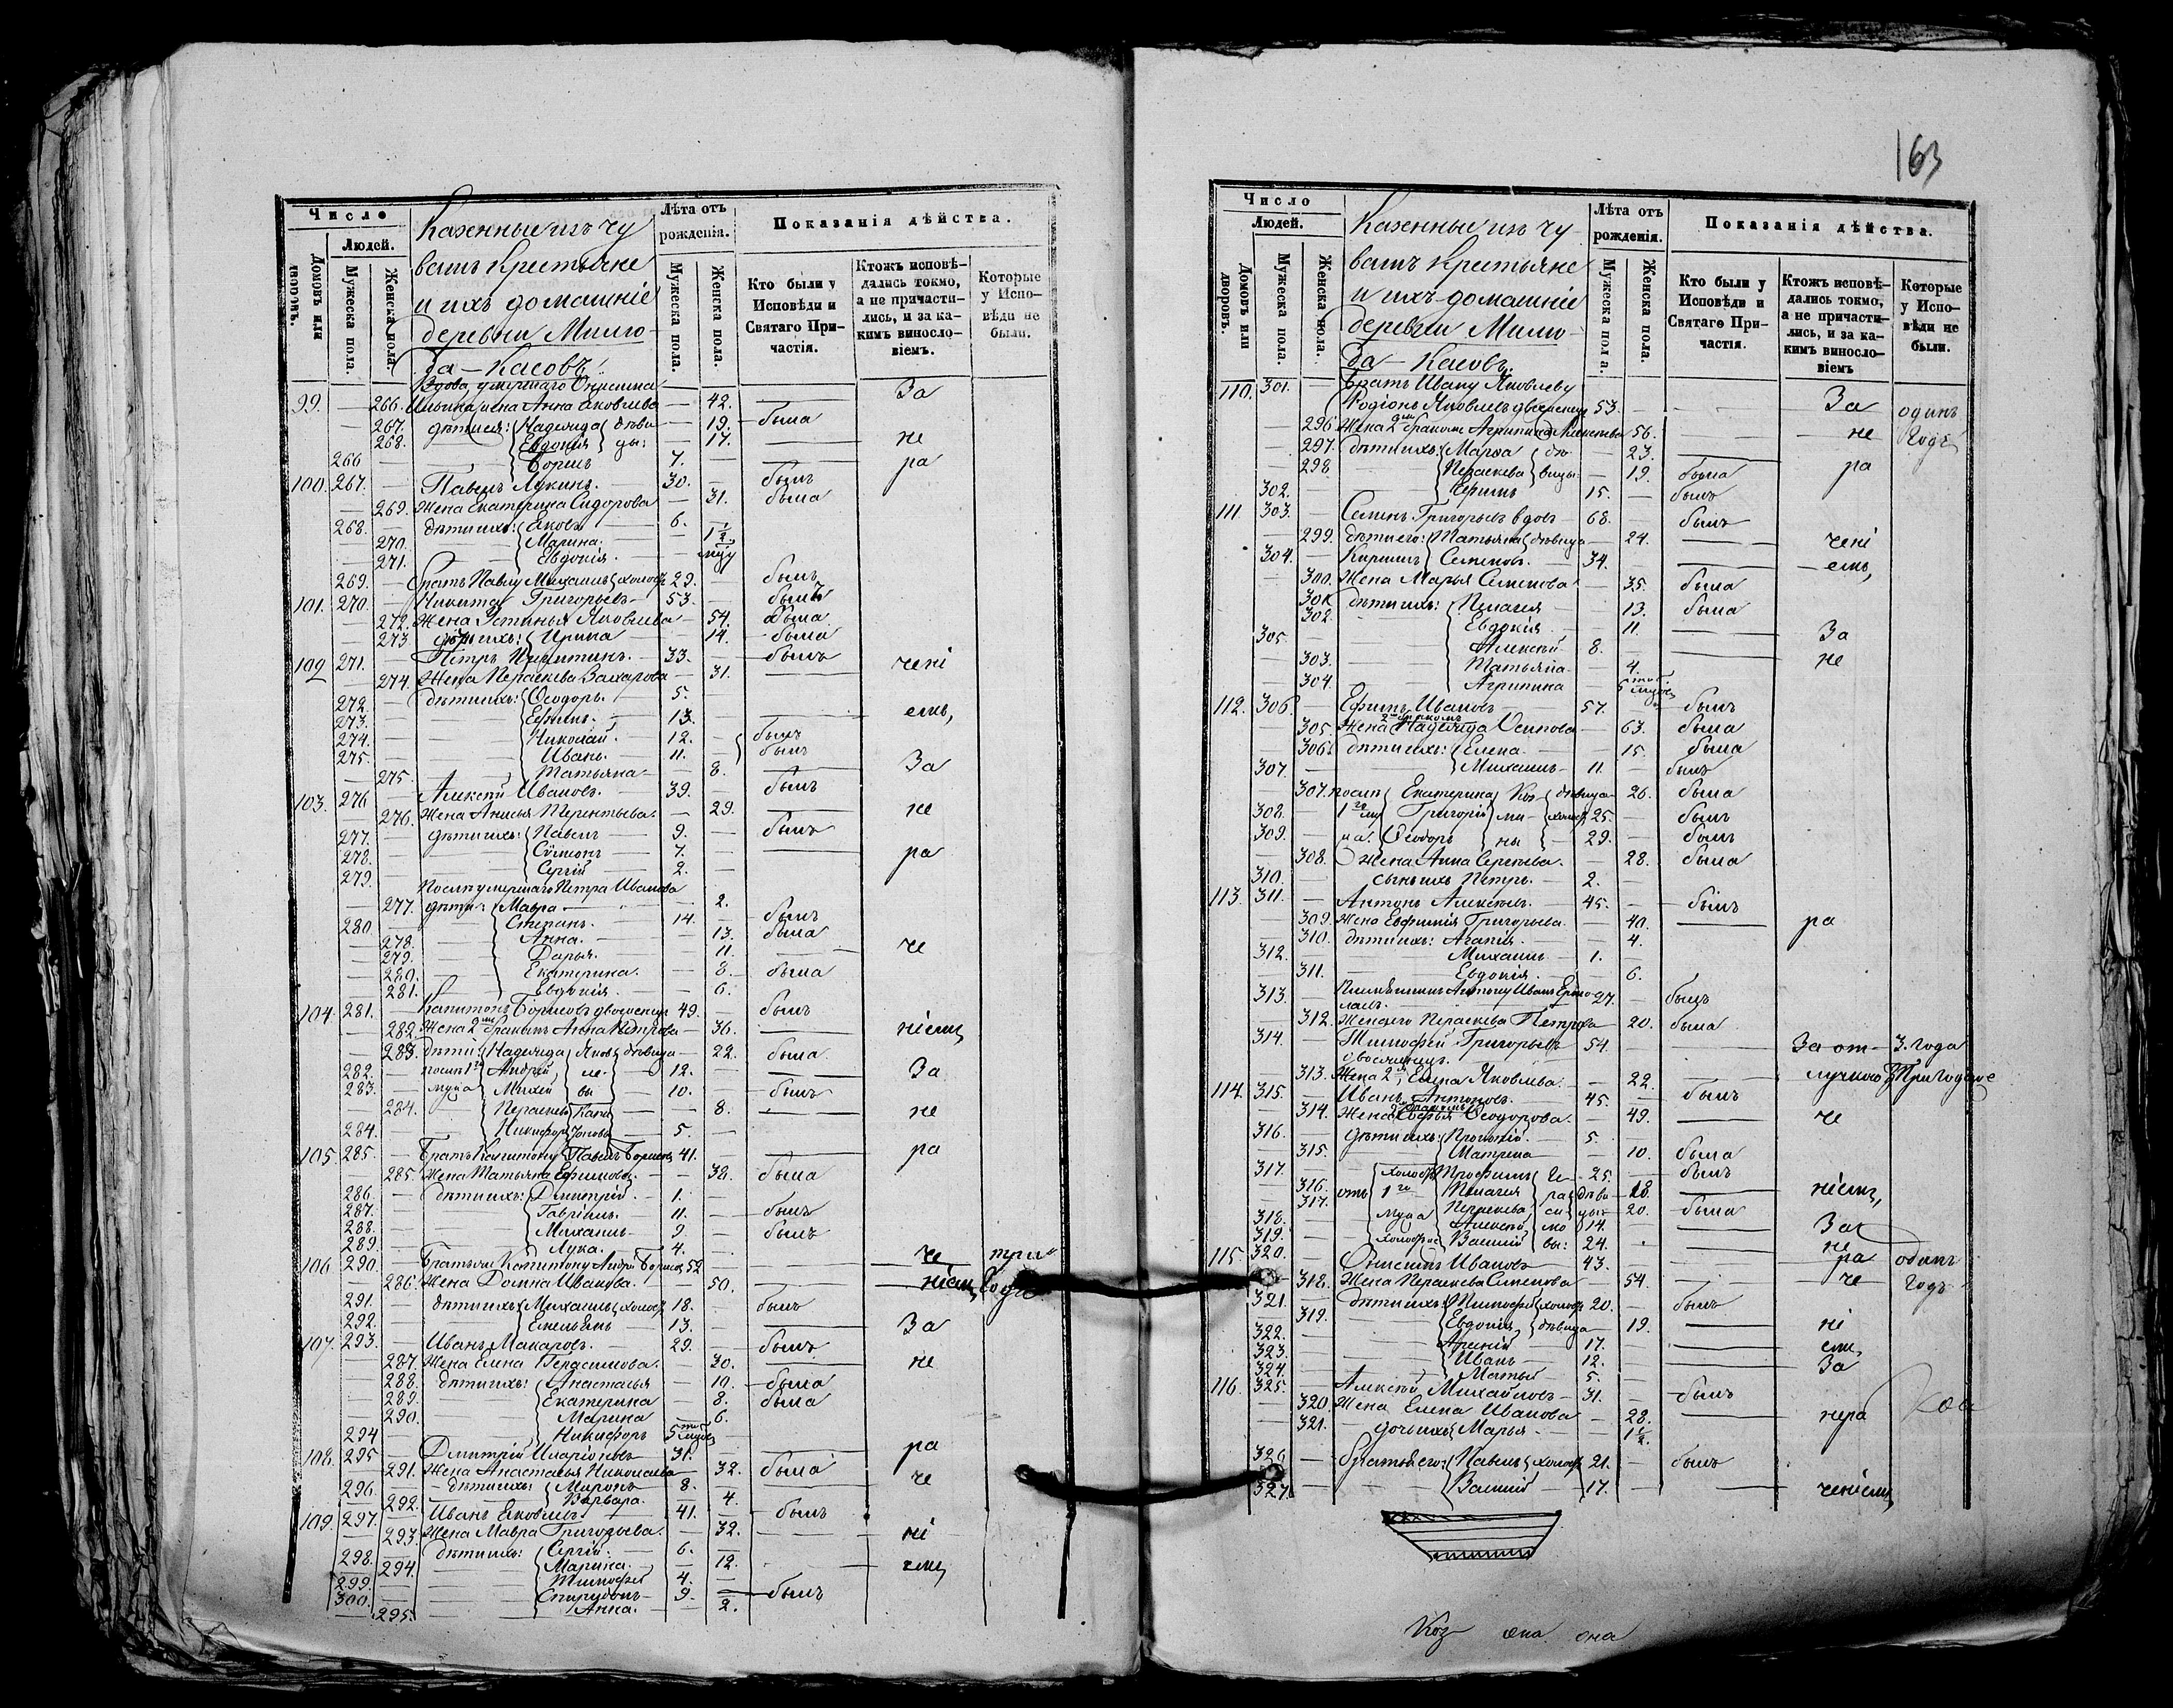 Число
Людей.
Домовъ или дворовъ.
Мужеска пола.
Женска пола.
Казенные изъ чу
вашъ крестьяне
и ихъ домашніе
деревни
да – Касовъ.
Лѣта отъ рожденія.
Мужеска пола.
Женска пола.
Показанія дѣйства.
Кто были у Исповѣди и Святаго Причастія.
Ктожъ исповѣдались токмо, а не причастились, и за какимъ винословіемъ.
Которые у Исповѣди не были.
Вдова умершаго
99. — 266. жена Анна Яковлева — 42. За
267. дѣти ея: Надежда дѣви — 19. была
268. Евдокія цы: — 17. не
266 Борисъ 7.
100. 267. Павелъ Лукинъ. 30. — былъ ра
269. Жена Екатерина Сидорова — 31. была
268. дѣти ихъ: Яковъ 6.
270. Марина. — 1½
271. Евдокія. —
269. Братъ Павлу Михаилъ холост 29. былъ
101. 270. Никита Григорьевъ 53. былъ
272. Жена Устинья Яковлева — 54. была
273 дѣти ихъ: Ирина — 14. была
102 271. Петръ Никитинъ. 33. былъ
274. Жена Параскева Захарова — 31. чені
272. дѣти ихъ: Ѳеодоръ. 5.
273. Ефимъ. 13. емъ,
274. Николай. 12. былъ
275. Иванъ. 11. былъ
275. Татьяна — 8. За
103. 276 Алексѣй Ивановъ. 39. былъ
276. Жена Анисья Терентьева. — 29. не
277. дѣти ихъ: Павелъ 9. былъ
278. Сѵмеонъ 7. ра
279. Сергій 2.
Послѣ умершаго Петра Иванова
277. дѣти: Мавра — 2.
280 Степанъ. 14. былъ
278. Анна. — 13. была
279. Дарья. — 11. че
280. Екатерина. — 8. была
281. Евдокія. — 6.
104. 281. Капитонъ Борисовъ двоеженецъ 49. былъ
282. Жена 2мъ бракомъ Анна Петрова — 36. ніемъ
283. дѣти: Надежда Яков дѣвица — 22. была
282. Андрей ле 12. За
283. мужа Михей вы 10. былъ
284. Параскева Капи — 8. не
284. Никифоръ тоновы 5.
105 285 Братъ Капитону Павелъ Борисовъ 41. ра
285. Жена Татьяна Ефимова. — 38. была
286. дѣти ихъ: Дмитрій. 1.
287. Гавріилъ. 11. былъ
288. Михаилъ 9. былъ
289. Лука. 4.
106. 290. Братъ Капитону Андрей Борисовъ 52 че три
286. Жена Домна Иванова. — 50. ніемъ, года
291. дѣти ихъ: Михаилъ холост 18. былъ
292. Емельянъ 13. За
107. 293. Иванъ Макаровъ. 29. былъ
287. Жена Елена Герасимова. — 30. не
288. дѣти ихъ: Анастасья — 10. была
289. Екатерина — 8. была
290. Марина — 6.
294 Никифоръ 5
108. 295 Дмитрій Иларіоновъ 31. ра
291. Жена Анастасья Николаева — 32. была
296. дѣти ихъ: Миронъ 8. че
292. Варвара. — 4.
109. 297. Иванъ Яковлевъ 41. былъ
293. Жена Мавра Григорьева. — 32. ні
298. дѣти ихъ: Сергій. 6.
294. Марина. — 12. емъ
299. Тимофей 4.
300. Спиридонъ 9. былъ
295. Анна. — 2.
163
Число
Людей.
Домовъ или дворовъ.
Мужеска пола.
Женска пола.
Казенные изъ чу
вашъ крестьяне
и ихъ домашніе
деревни
да – Касовъ.
Лѣта отъ рожденія.
Мужеска пола.
Женска пола.
Показанія дѣйства.
Кто были у Исповѣди и Святаго Причастія.
Ктожъ исповѣдались токмо, а не причастились, и за какимъ винословіемъ
Которые у Исповѣди не были.
110. 301. Братъ Ивану Яковлеву
Родіонъ Яковлевъ двоеженецъ 53. За одинъ
296. Жена 2мъ бракомъ Агрипина Алексѣева 56. не годъ
297. дѣти ихъ: Марѳа дѣ — 23.
298 Параскева вицы — 19. была ра
302. 15. былъ
111 303. Семенъ Григорьевъ вдовъ 68. былъ
299. дѣти его: Татьяна дѣвица — 24. чені
304. Кириллъ Семеновъ. 34. емъ,
300. Жена Марья Семенова — 35. была
301. дѣти ихъ: Пелагея — 13. была
302. Евдокія — 11.
305. Алексѣй 8. За
303. Татьяна — 4. не
304. Агрипина — 5
112. 306. Ефимъ Ивановъ 57. былъ
305. Жена 2мъ бракомъ Надежда Осипова — 63. была
306. дѣти ихъ: Елена. — 15. была
307. Михаилъ 11. былъ
307. Екатерина Коз дѣвица — 26. была
308. 1го му Григорій ми холост 25. былъ
309. жа. Ѳеодоръ ны 29. былъ
308. Жена Анна Сергѣева. — 28. была
310. сынъ ихъ Петръ. 2.
113. 311. Антонъ Алексѣевъ. 45. былъ
309. Жена Евфимія Григорьева. — 40. ра
310. дѣти ихъ: Агапія. — 4.
312. Михаилъ 1.
311. Евдокія. — 6.
313. Племянникъ Антону Иванъ Ермо
лаевъ. 27. былъ
312. Жена его Параскева Петрова — 20. была
314. Тимофей Григорьевъ 54. За от 3. года
двоеженецъ.
313. Жена 2я, Елена Яковлева. — 22. лучкою
114. 315. Иванъ Антоновъ. 45. былъ
314. Жена 2 бракомъ Софья Ѳеодорова. — 49. че
316. дѣти ихъ: Прокопій. 5.
315. Матрена — 10. была
317. холост Трофимъ Ге 25. былъ
316. отъ 1го Пелагея ра дѣви — 18. ніемъ,
317. мужа Параскева си цы — 20. была
318. Алексѣй мо 14. За
319. холост Василій вы: 24. не
115. 320. Анисимъ Ивановъ 43. ра одинъ
318. Жена Параскева Семенова — 54. че годъ
321. дѣти ихъ: Тимофей холост 20. былъ
319. Евдокія, дѣвица — 19. ні
322. Арсеній 17. емъ,
323. Иванъ 12. За
324. Матвей 5.
116. 325. Алексѣй Михайловъ 31. былъ
320. Жена Елена Иванова — 28. нера
321. дочь ихъ Марья. — 1½
326 братья его: Павелъ холост 21. былъ
327. Василій 17. ченіемъ